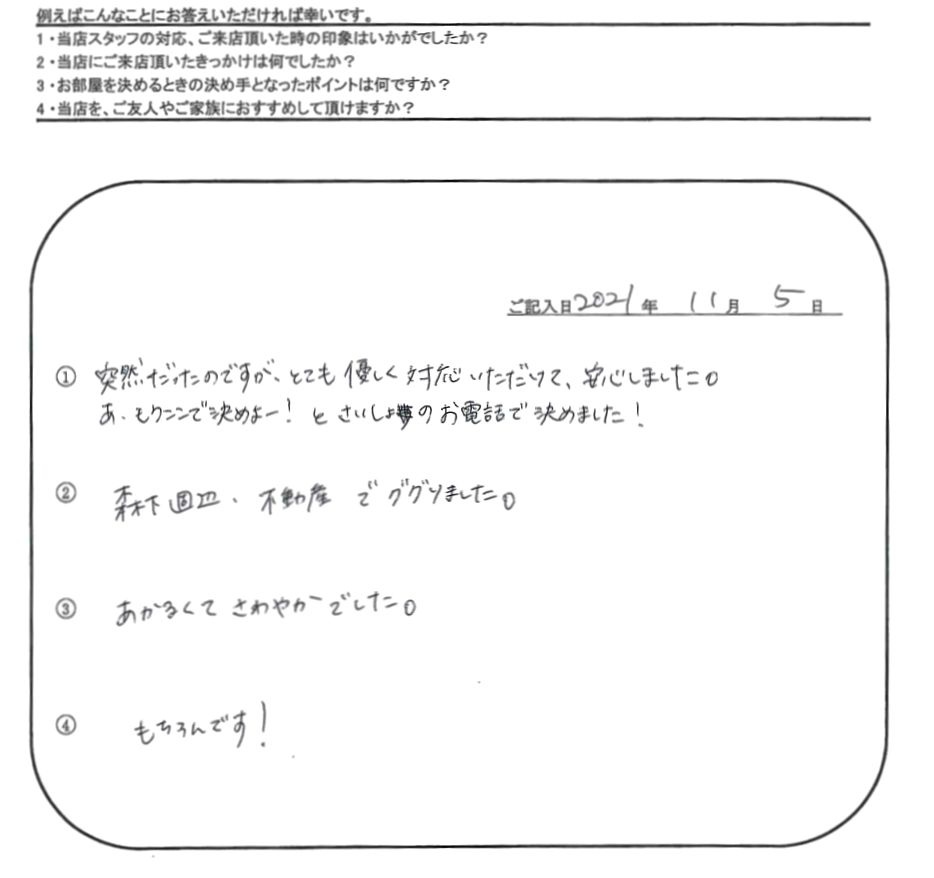 例えばこんなことにお答えいただければ幸いです。
1・当店スタッフの対応、ご来店頂いた時の印象はいかがでしたか？
2・当店にご来店頂いたきっかけは何でしたか？
3・お部屋を決めるときの決め手となったポイントは何ですか？
4・当店を、ご友人やご家族におすすめして頂けますか？
ご記入日2021年 11月 5日
① 突然だったのですが、とても優しく対応いただけて、安心しました。
あ、もうココで決めよー！とさいしょのお電話で決めました！
② 森下周辺、不動産でググりました。
③ あかるくてさわやかでした。
④ もちろんです！